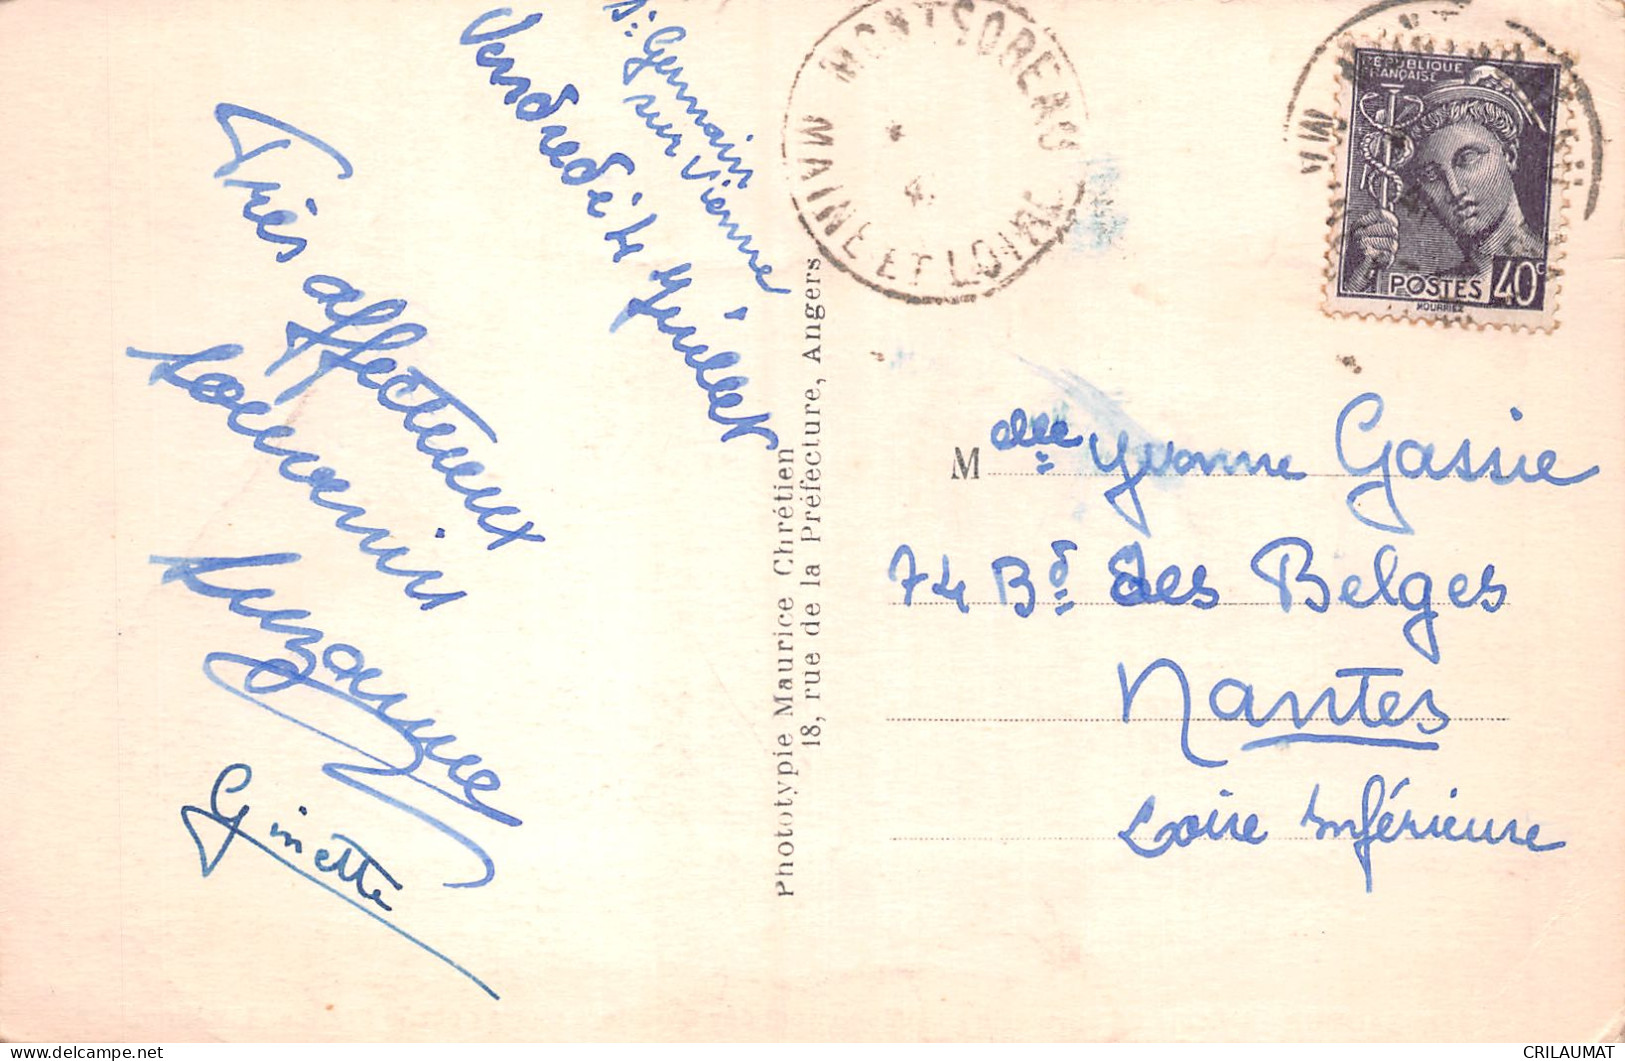 St Germain
sur Vienne
Vendredi 4 Juillet
Très affectueux
souvenir
Suzanne
Ginette
Phototypie Maurice Chrétien
18, rue de la Préfecture, Angers
MONTSOREAU
MAINE ET LOIRE
4
RÉPUBLIQUE
FRANÇAISE
POSTES 40c
HOURRIEZ
Melle Yvonne Gassie
74 Bd des Belges
Nantes
Loire Inférieure
CRILAUMAT